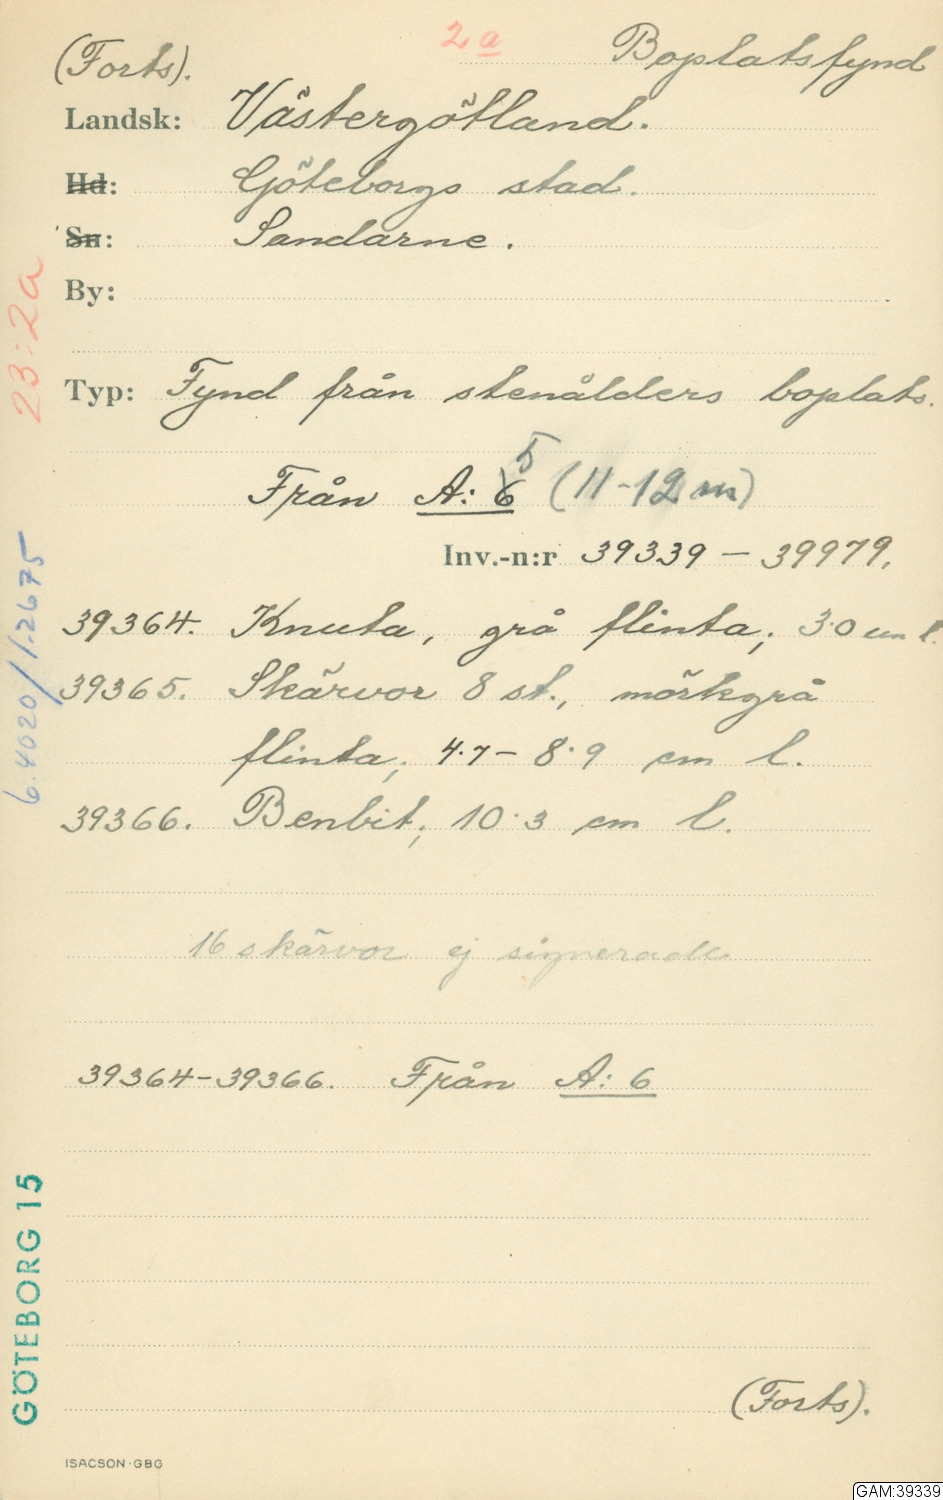 2 a
Boplatsfynd
(Forts).
Landsk: Västergötland.
Hd: Göteborgs stad.
Sn: Sandarne.
By:
23:2a
Typ: Fynd från stenålders boplats.
Från A: 6 5 (11-12 m)
Inv.-n:r 39339 — 39979.
39364. Knuta, grå flinta; 3·0 cm l.
39365. Skärvor 8 st., mörkgrå
flinta; 4·7 — 8·9 cm l.
39366. Benbit; 10·3 cm l.
6.4020/1.2675
16 skärvor ej signerade
39364-39366. Från A: 6
GÖTEBORG 15
(Forts).
ISACSON·GBG
GAM:39339